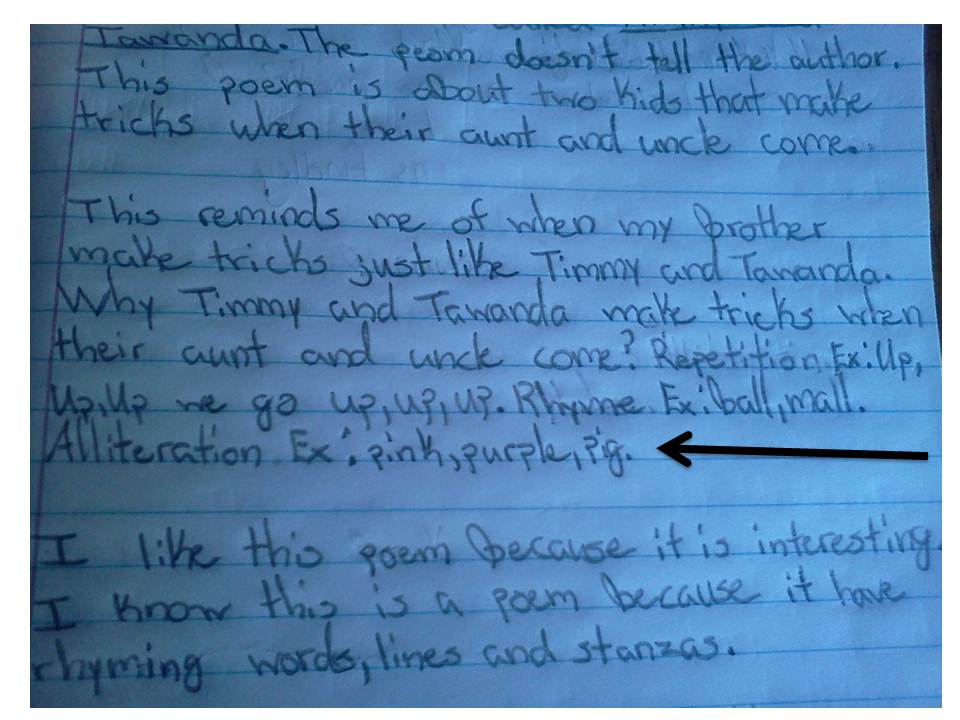 Tawanda. The peom doesn't tell the author.
This poem is about two kids that make
tricks when their aunt and uncle come.
This reminds me of when my brother
make tricks just like Timmy and Tawanda.
Why Timmy and Tawanda make tricks when
their aunt and uncle come? Repetition Ex: Up,
Up, Up we go up, up, up. Rhyme Ex: ball, mall.
Alliteration Ex: pink, purple, pig.
I like this poem because it is interesting.
I know this is a poem because it have
rhyming words, lines and stanzas.